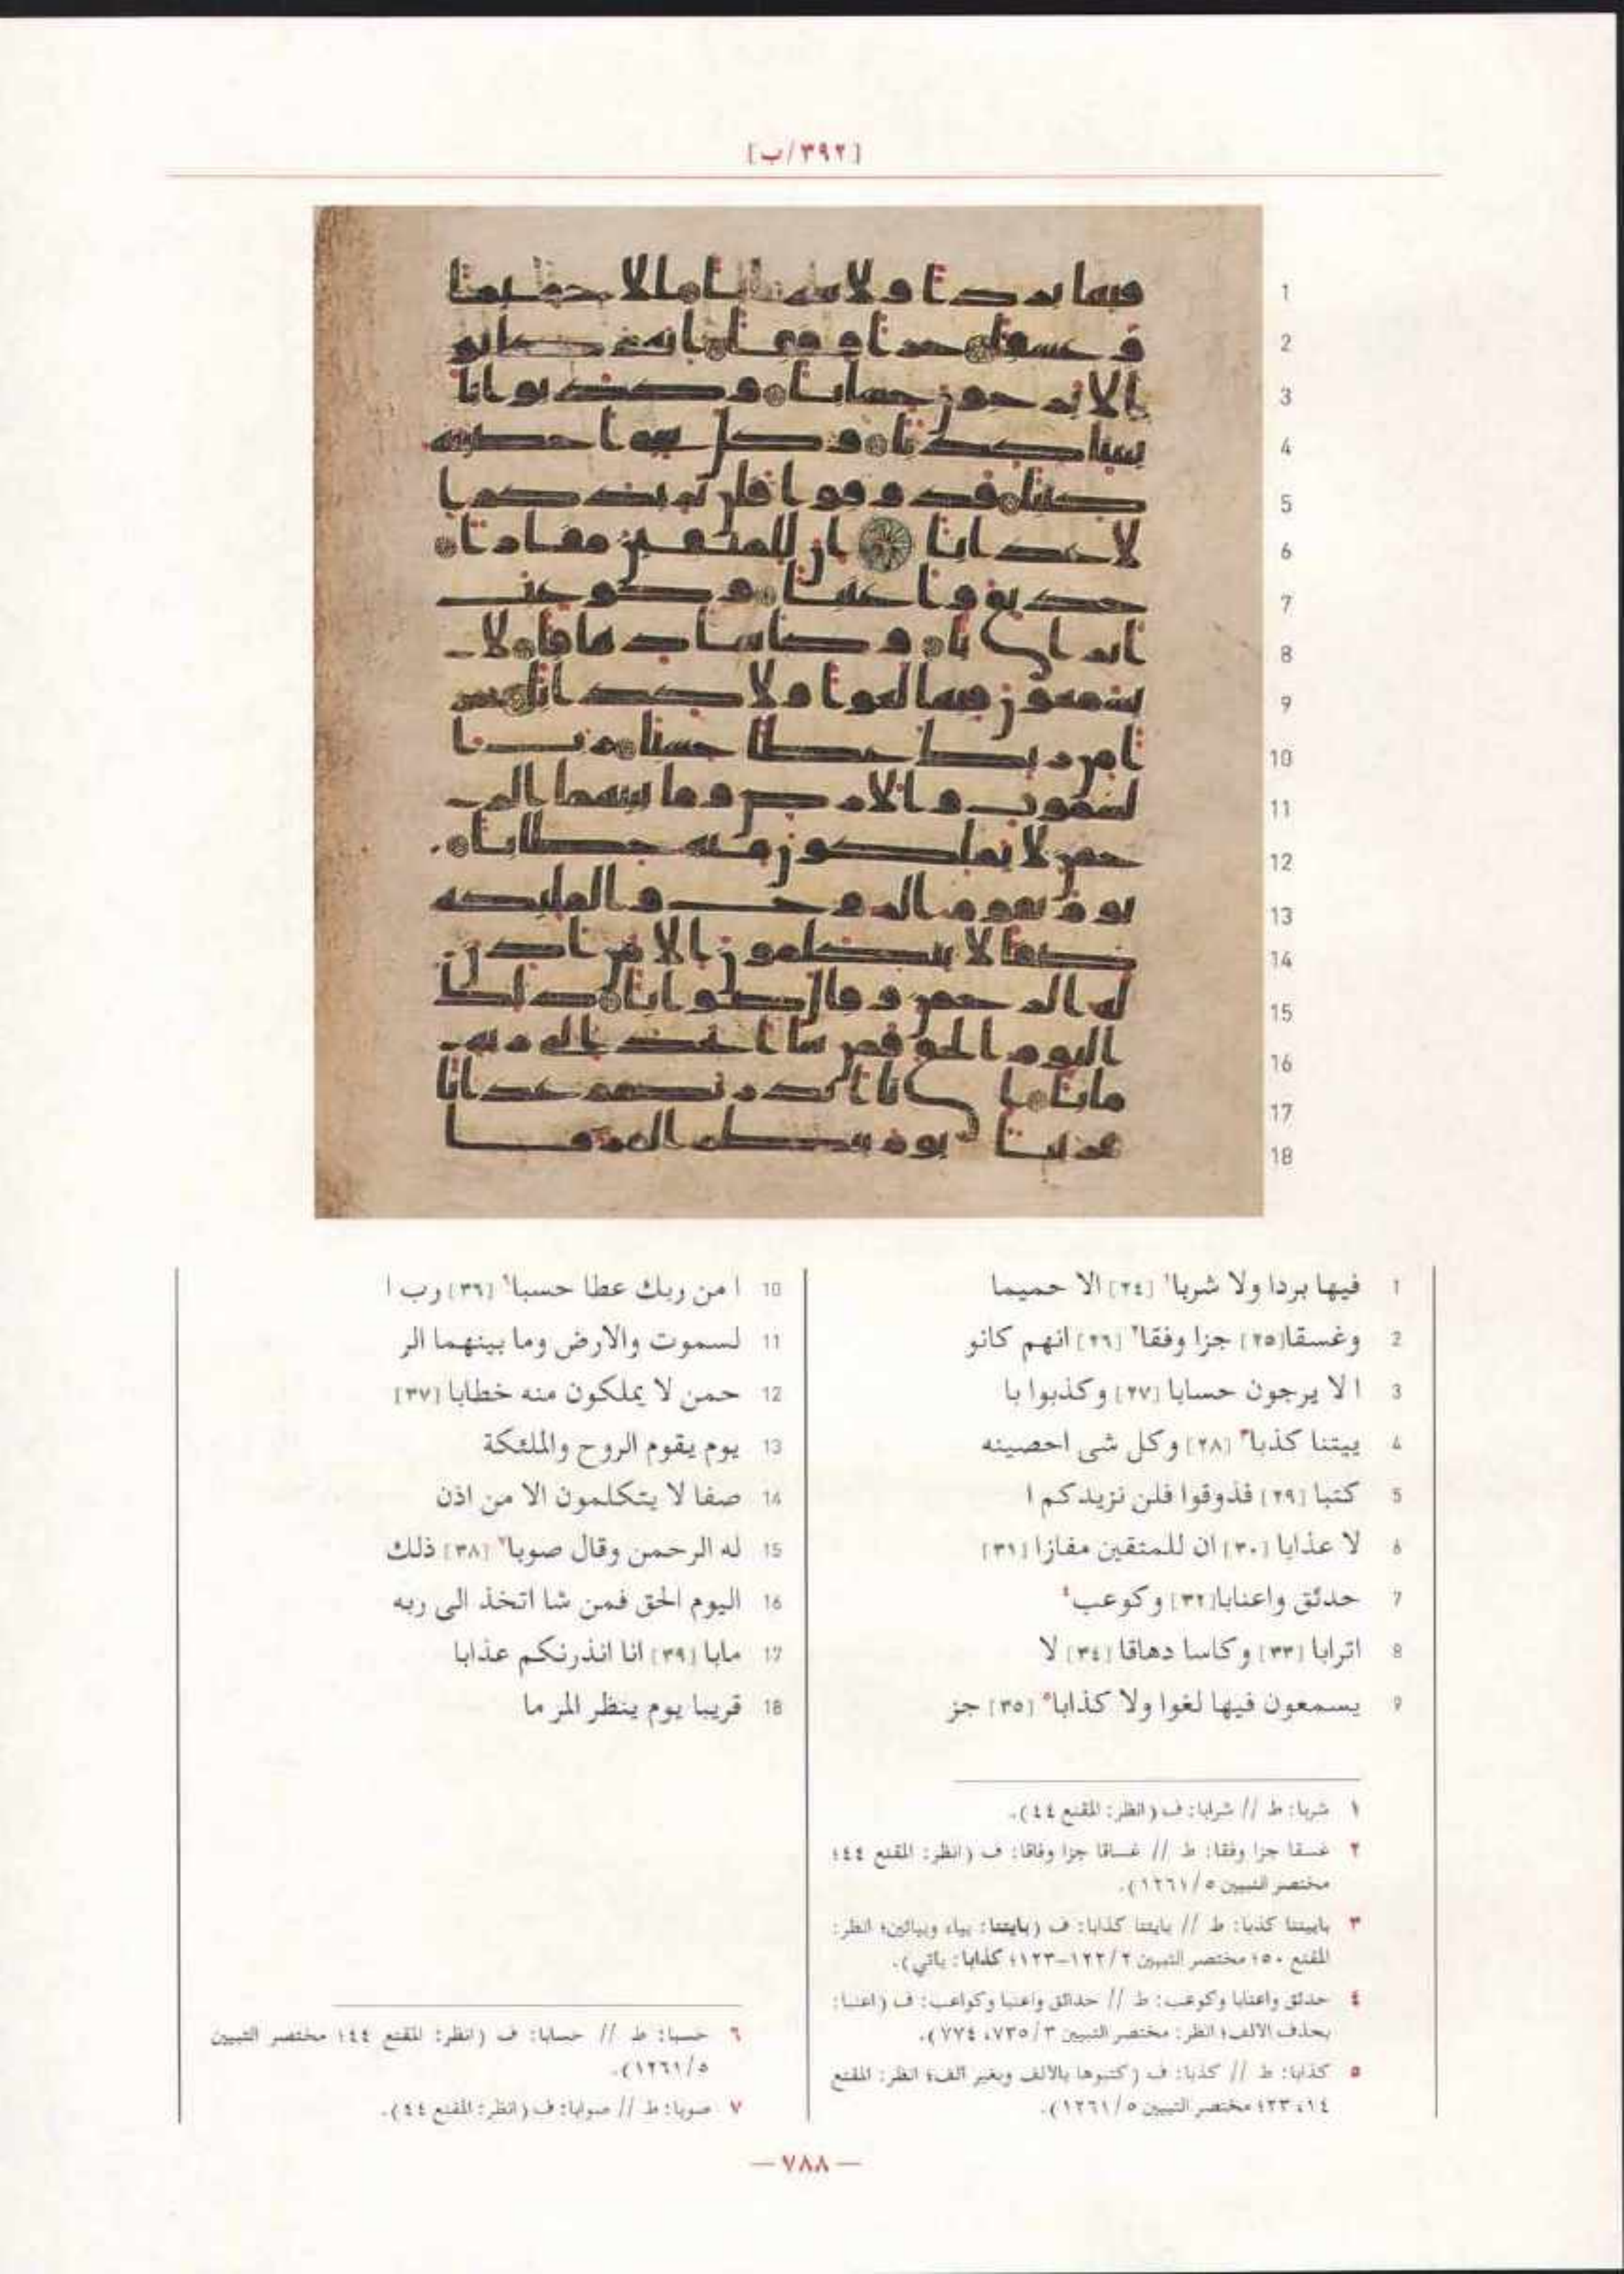 [٣٩٢/ب]
1 فيها بردا ولا شربا١ [٢٤] الا حميما
2 وغسقا[٢٥] جزا وفقا٢ [٢٦] انهم كانو
3 ا لا يرجون حسابا [٢٧] وكذبوا با
4 ييتنا كذبا٣ [٢٨] وكل شى احصينه
5 كتبا [٢٩] فذوقوا فلن نزيدكم ا
6 لا عذابا [٣٠] ان للمتقين مفازا [٣١]
7 حدئق واعنابا[٣٢] وكوعب٤
8 اترابا [٣٣] وكاسا دهاقا [٣٤] لا
9 يسمعون فيها لغوا ولا كذابا٥ [٣٥] جز
10 ا من ربك عطا حسبا٦ [٣٦] رب ا
11 لسموت والارض وما بينهما الر
12 حمن لا يملكون منه خطابا [٣٧]
13 يوم يقوم الروح والملئكة
14 صفا لا يتكلمون الا من اذن
15 له الرحمن وقال صوبا٧ [٣٨] ذلك
16 اليوم الحق فمن شا اتخذ الى ربه
17 مابا [٣٩] انا انذرنكم عذابا
18 قريبا يوم ينظر المر ما
١ شربا: ط // شرابا: ف (انظر: المقنع ٤٤).
٢ غسقا جزا وفقا: ط // غساقا جزا وفاقا: ف (انظر: المقنع ٤٤؛
مختصر التبيين ١٢٦١/٥).
٣ باييتنا كذبا: ط // بايتنا كذابا: ف (بايتنا: بياء وبيائين؛ انظر:
المقنع ٥٠؛ مختصر التبيين ١٢٢/٢-١٢٣؛ كذابا: ياتي).
٤ حدئق واعنابا وكوعب: ط // حدائق واعنبا وكواعب: ف (اعنبا:
بحذف الالف؛ انظر: مختصر التبيين ٧٣٥/٣، ٧٧٤).
٥ كذابا: ط // كذبا: ف (كتبوها بالالف وبغير الف؛ انظر: المقنع
١٤، ٢٣؛ مختصر التبيين ١٢٦١/٥).
٦ حسبا: ط // حسابا: ف (انظر: المقنع ٤٤؛ مختصر التبيين
١٢٦١/٥).
٧ صوبا: ط // صوابا: ف (انظر: المقنع ٤٤).
— ٧٨٨ —